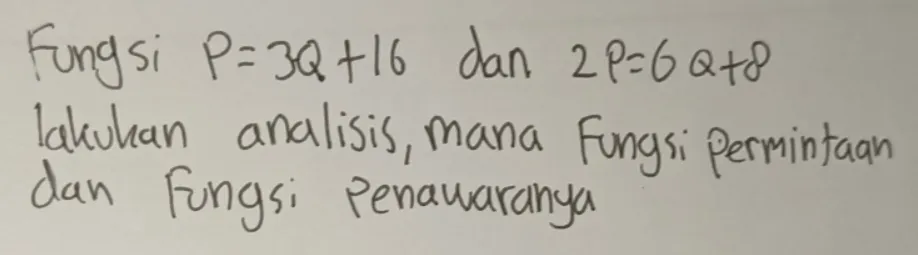 Fungsi P=3Q+16 dan 2P=6Q+8
lakukan analisis, mana Fungsi Permintaan
dan Fungsi Penawaranya